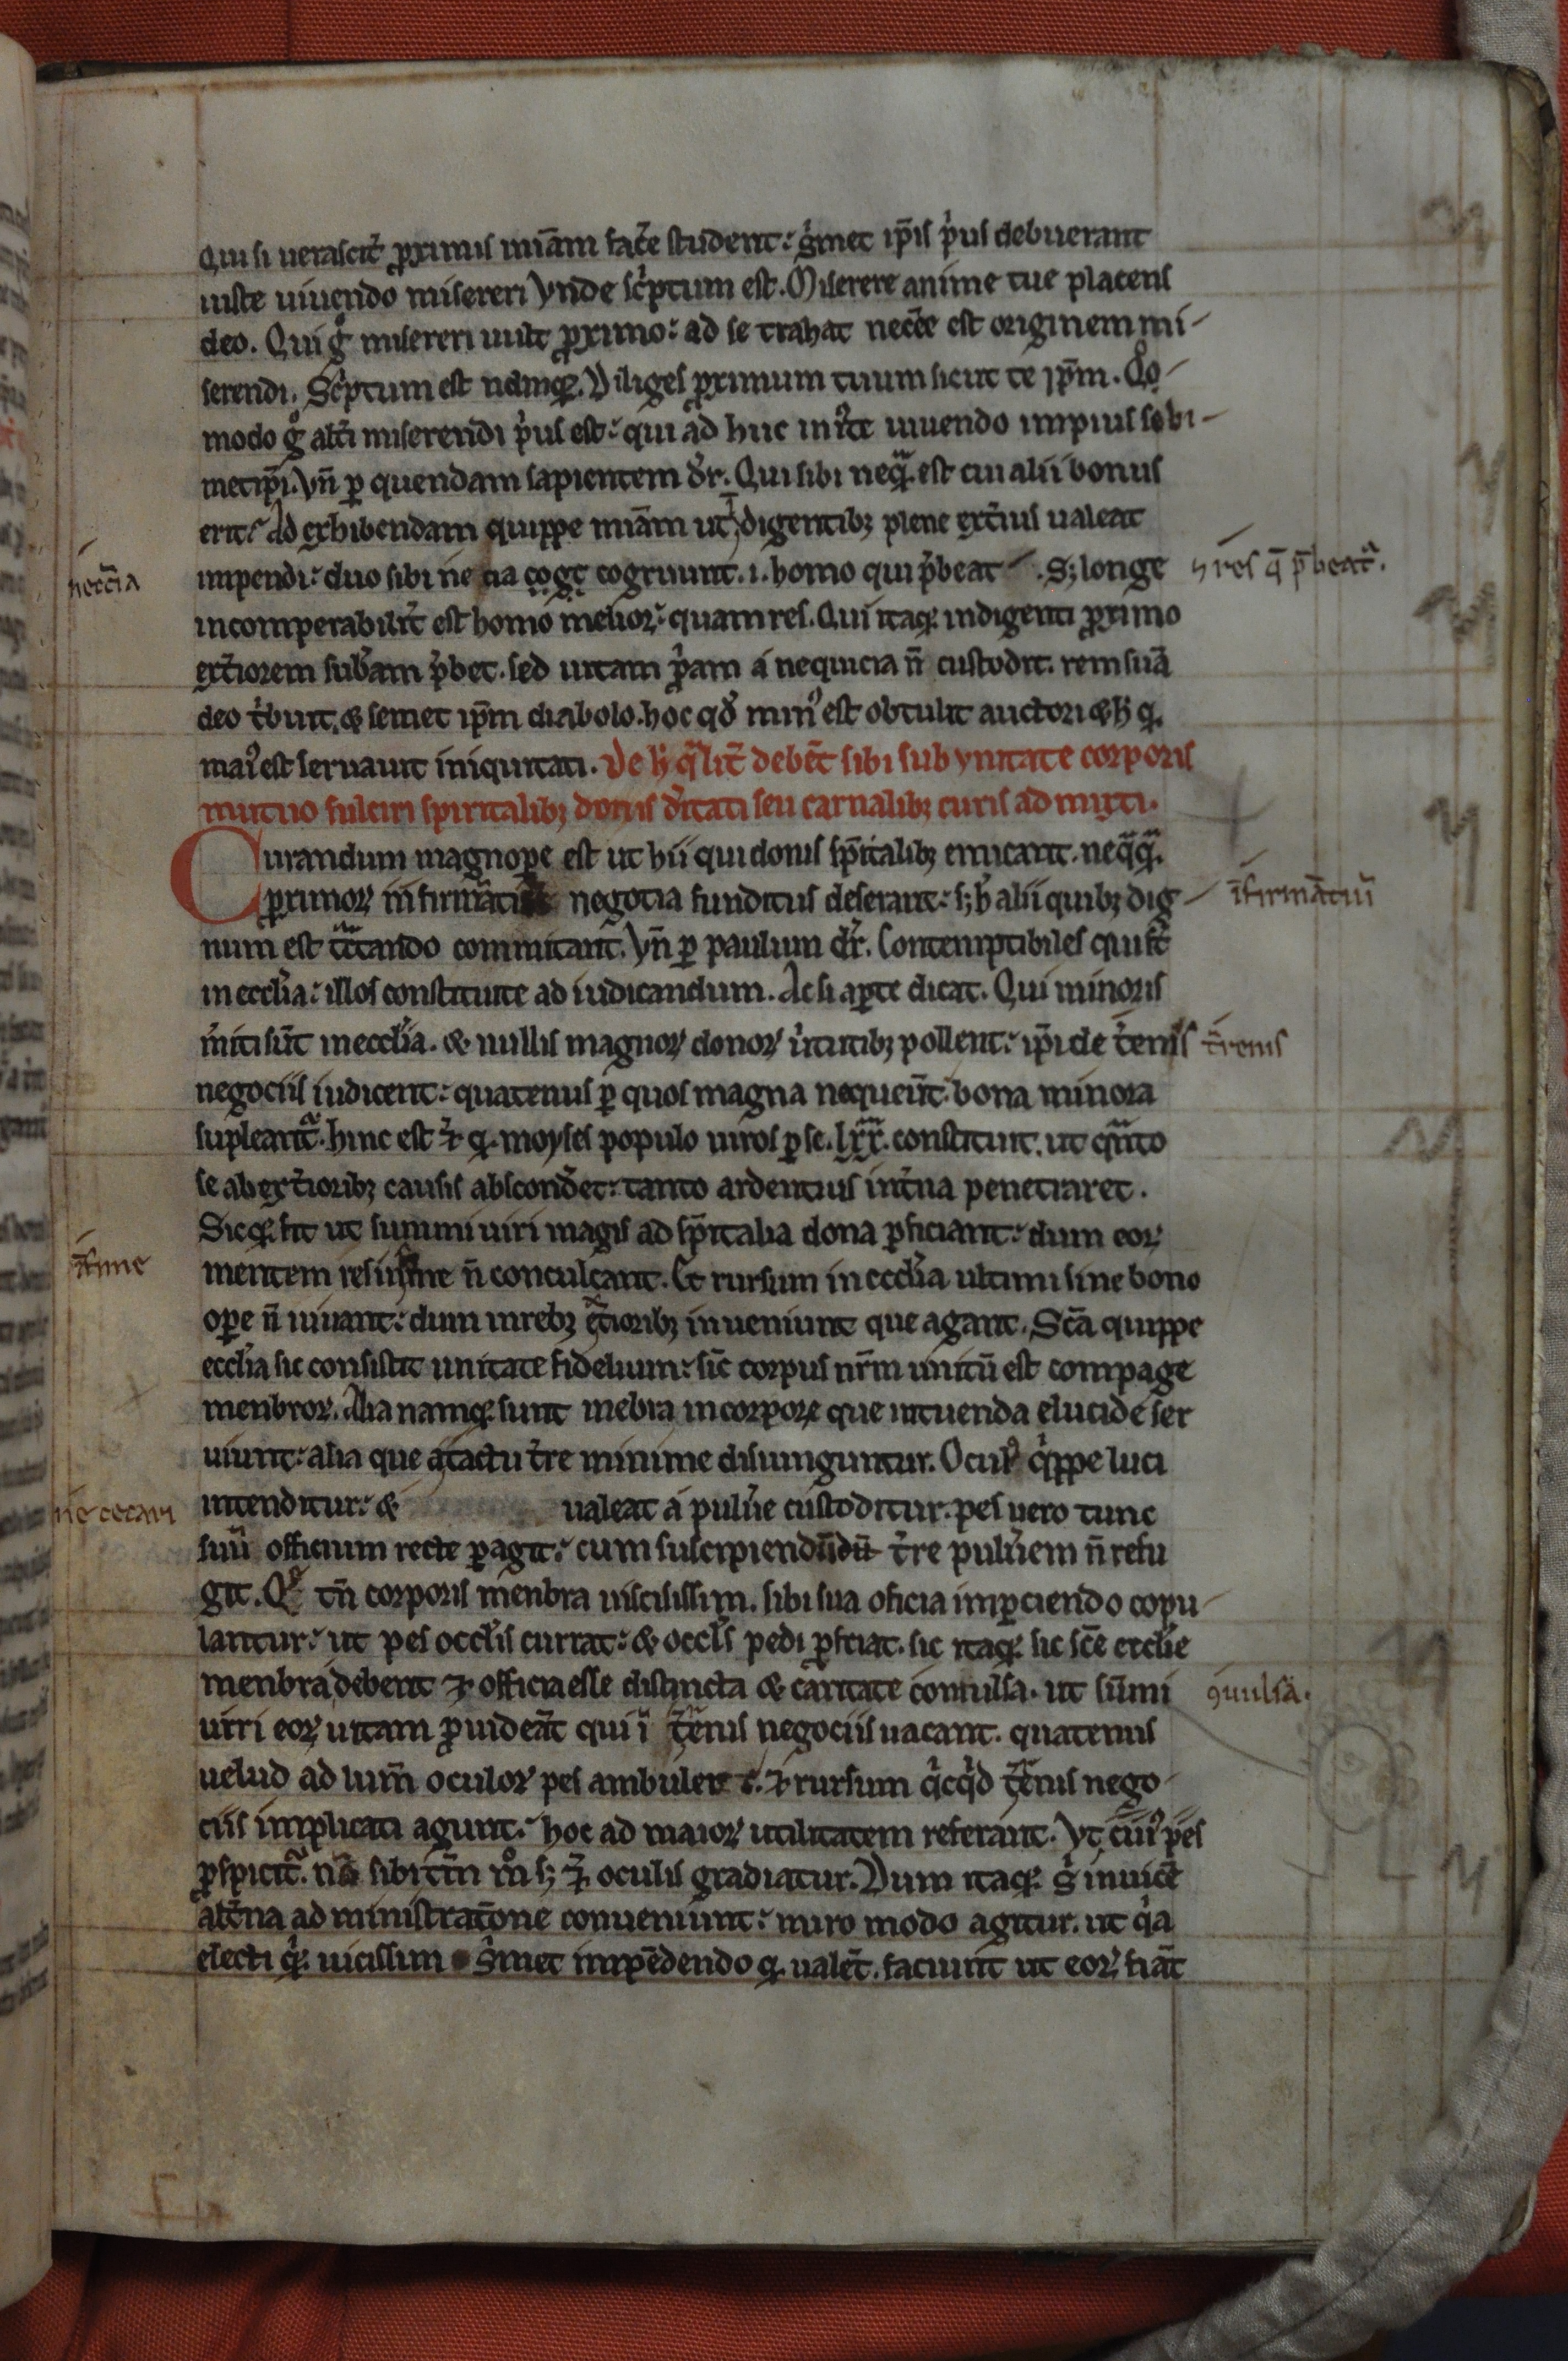 Qui si ueracit̉ ꝓximis miām fac̉e student: s̉met ip̄is p̉us debuerant
iuste uiuendo misereri Vnde sc̉ptum est. Miserere anime tue placens
deo. Qui gͦ misereri uult ꝓximo: ad se trahat nec̄ee est originem mi-
serendi. Sc̉ptum est namq;. Diliges ꝓximum tuum sicut te ip̄m. Qͦo-
modo gͦ alt̉i miserendi p̉us est: qui ad huc iniᷓte uiuendo impius sibi-
metip̄i. Vn̄ ꝑ quendam sapientem dr̄. Qui sibi neqᷓ. est cui alii bonus
erit: Ad exhibendam quippe miām ut īdigentibꝫ plene ext̉ius ualeat
impendi: duo sibi ne cia cogt cogruunt. i. homo qui p̉beat . Sꝫ longe
incomperabilit̉ est homo melior: quam res. Qui itaq; indigenti ꝓximo
ext̉iorem sub̄am p̉bet. sed uitam ꝓp̉am a nequicia n̄ custodit. rem suā
deo t̉buit. & semet ip̄m diabolo. hoc qd̉ minꝰ est obtulit auctori & h̉ q;.
maiꝰ est seruauit iniquitati. De h̉ qᷓlit̉ debēt sibi sub ynitate corporis
mutuo fulciri spiritalibꝫ donis d̉itati seu carnalibꝫ curis ad mixti.
Curandum magnoꝑe est ut hii qui donis sp̄italibꝫ emicant. neqᷓqᷓ.
ꝓximoꝝ infirmāti negocia funditus deserant: sꝫ h̉ alii quibꝫ dig-
num est tᷓctando commitant. Vn̄ ꝑ paulum dr̄. Contemptibiles qui st̉
in ecclīa: illos constituite ad iudicandum. Ac si aꝑte dicat. Qui minoris
m̉iti sūt in ecclīa. & nullis magnoꝝ donoꝝ v̉tutibꝫ pollent: ip̄i de t̉renis
negociis iudicent: quatenus ꝑ quos magna nequeūt. bona minora
supleantᷣ. hinc est ⁊ q;. moyses populo uiros ꝑ se. lxx. constituit. ut qᷓnto
se ab ext̉ioribꝫ causis absconderet: tanto ardentius int̉na penetraret.
Sicq; fit ut summi uiri magis ad sp̄italia dona ꝓficiant: dum eoꝝ
mentem res īfime n̄ conculcant. Et rursum in ecclīa ultimi sine bono
oꝑe n̄ uiuant: dum in rebꝫ ext̉ioribꝫ inueniunt que agant. Scā quippe
ecclīa sic consistit unitate fidelium: sic̄ corpus nr̄m unitū est compage
menbroꝝ. Alia namq; sunt mēbra in corpore que intuenda eluci deser
uiunt: alia que a tactu t̉re minime disiunguntur. Oculꝰ q̉ppe luci
intenditur: & ualeat a pulủe custoditur. pes uero tunc
suū officium recte ꝑagit: cum suscipiendūdū t̉re pulủem n̄ refu
git. Qͤ tn̄ corporis menbra uiscissim. sibi sua oficia imꝑciendo copu-
lantur: ut pes occl̄is currat: & occl̄s pedi ꝓspiciat. sic itaq; sic sc̄e ecclīe
menbra debent ⁊ officia esse distincta & caritate conuulsa. ut sūmi
uiri eoꝝ uitam ꝓuideāt qui ī t̉renis negociis uacant. quatenus
uelud ad lum̄ oculoꝝ pes ambulet. ⁊ rursum q̉cq̉d t̉renis nego-
ciis implicati agunt: hoc ad maioꝝ utilitatem referant. Vt cuiꝰ pes
ꝓspicitᷣ. nō sibi tm̄ mͦ sꝫ ⁊ oculis gradiatur. Dum itaq; s̉ inuicē
alt̉na ad ministratōne conueniunt: miro modo agitur. ut q̉a
electi q̉. uicissim s̉met impēdendo q;. ualēt. faciunt ut eoꝝ fiāt
neccīa
⁊ res q̄ p̉beatᷣ.
īfirmātiū
t̉renis
īfime
ne cecari
ꝯuulsa.